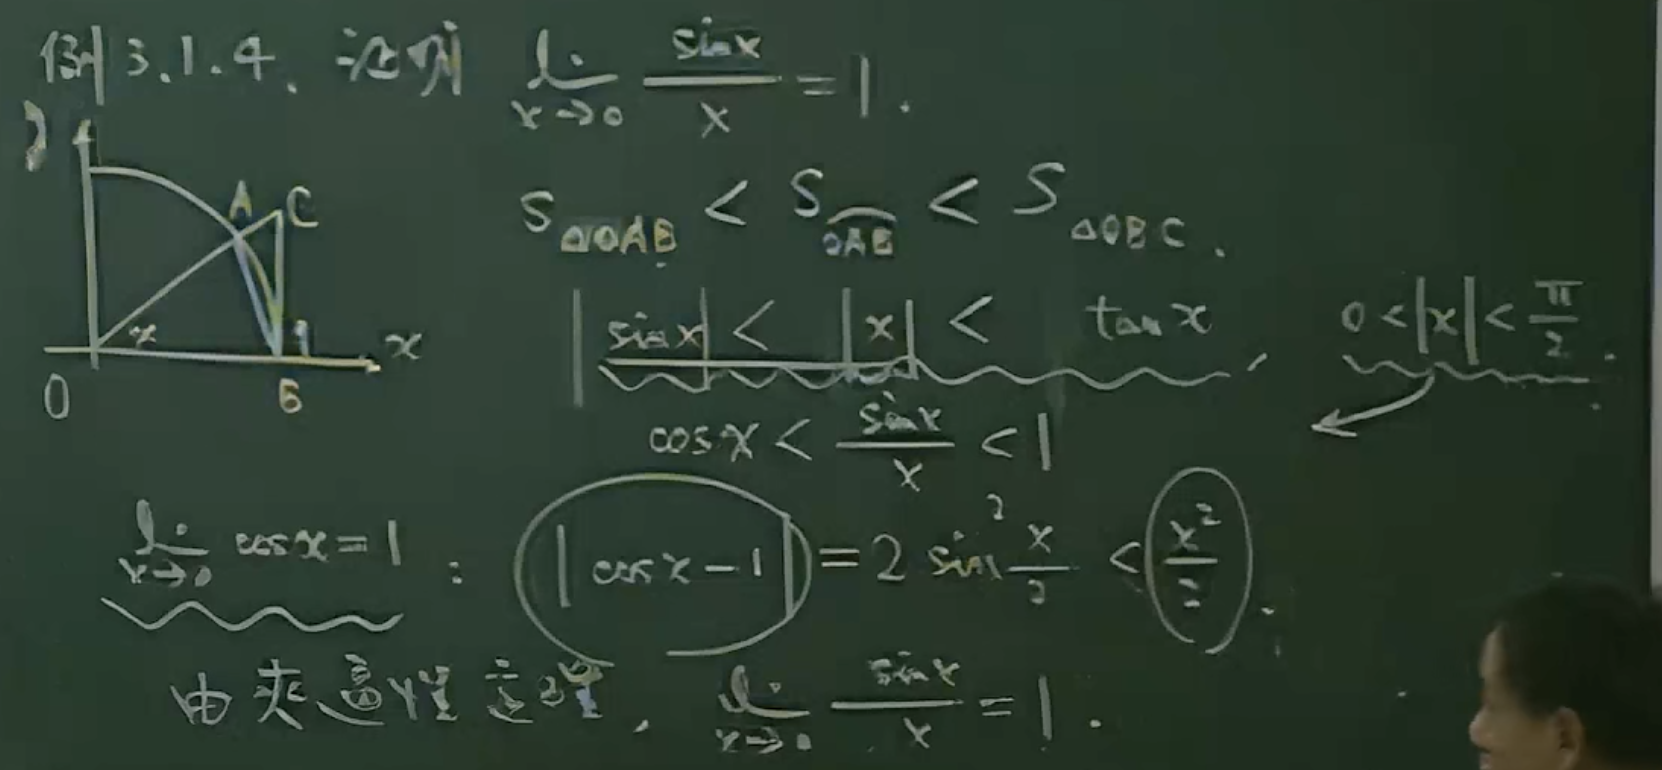 例3.1.4. 证明 lim x→0 sinx/x = 1.
y
A C
S△OAB < S⌒OAB < S△OBC.
|sinx| < |x| < tanx, 0<|x|<π/2.
x x
O B
cosx < sinx/x < 1
lim x→0 cosx=1 : |cosx-1| = 2 sin² x/2 < x²/2.
由夹逼性定理, lim x→0 sinx/x = 1.